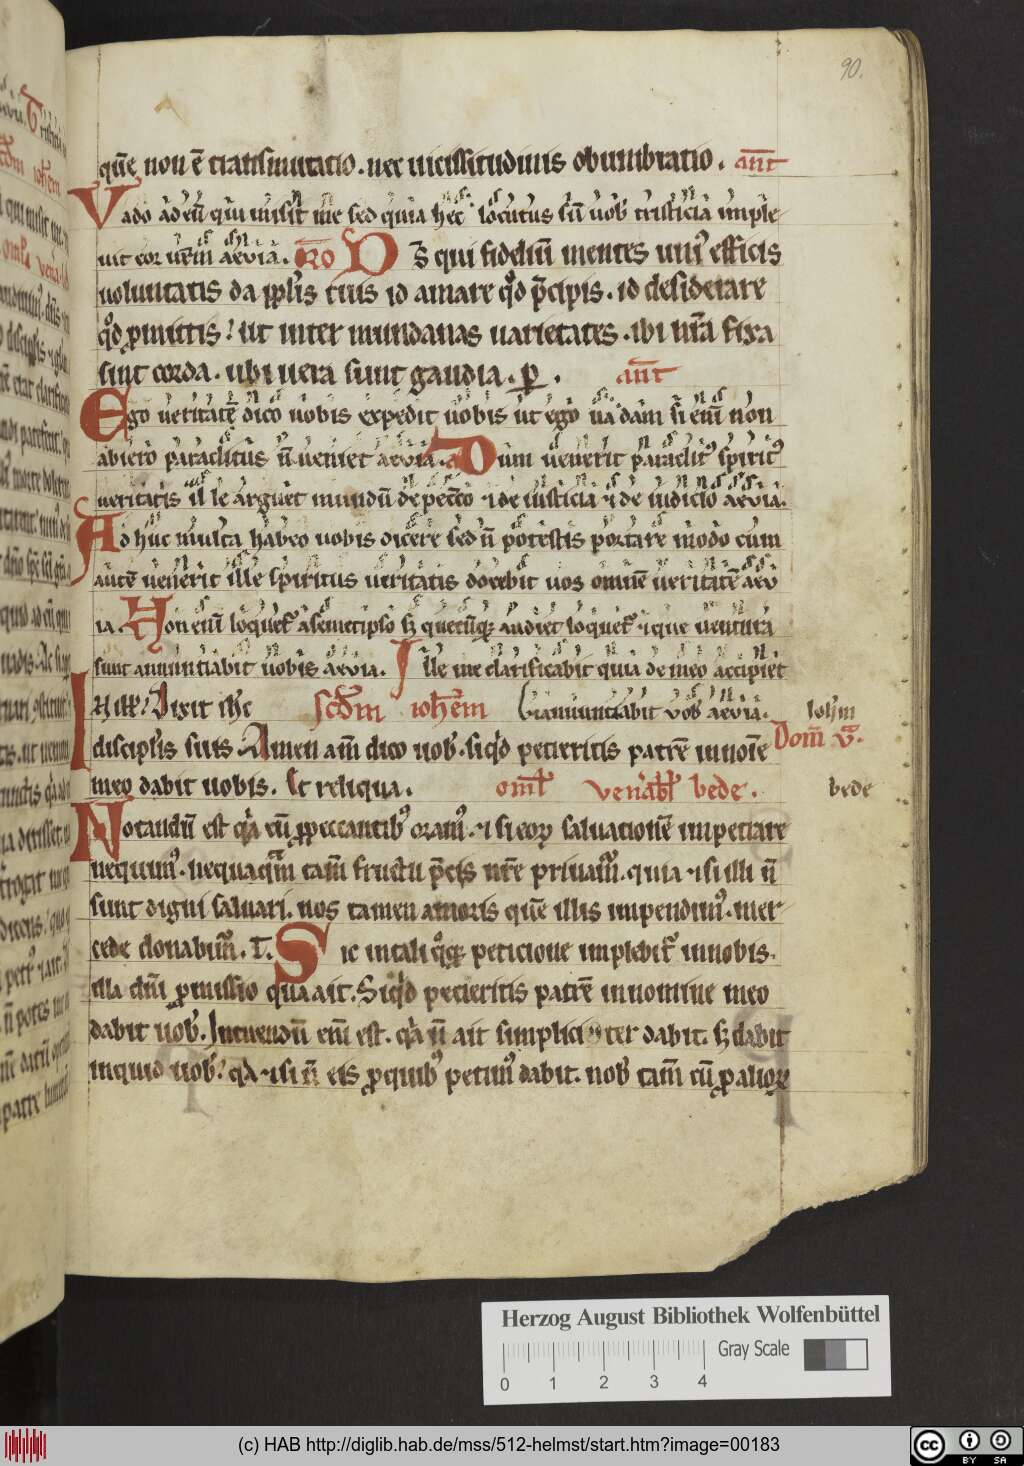 90.
quē non ē transmutatio. nec uicissitudinis obumbratio. ant̄
Vado ad eū qui misit me sed quia hec locutus sū uob᷒ tristicia imple-
uit cor ur̄m aeuia. Or̄o Ds̄ qui fideliū mentes uni᷒ efficis
uoluntatis da pp̄lis tuis id amare qd̄ p̄cipis. id desiderare
qd̄ ꝓmittis! ut inter mundanas uarietates. ibi nr̄a fixa
sint corda. ubi uera sunt gaudia. ꝑ. ant̄
Ego ueritatē dico uobis expedit uobis ut ego uadam si eni᷒ non
abiero paraclitus n̄ ueniet aeuia. Dum uenerit paraclit᷒ spirit᷒
ueritatis ille arguet mundū de pecc̄o ⁊ de iusticia ⁊ de iudicio aeuia.
Ad huc multa habeo uobis dicere sed n̄ potestis portare modo cum
autē uenerit ille spiritus ueritatis docebit uos omnē ueritatē aeu
ia. Non eni᷒ loquet᷒ a semetipso sꝫ quecūqꝫ audiet loquet᷒ ⁊ que uentura
sunt annuntiabit uobis aeuia. Ille me clarificabit quia de meo accipiet
IN ill᷒! Dixit ihc̄ sc̄dm ioh̄em ⁊ annuntiabit uob᷒ aeuia. Joh̄m
discipl̄is suis. Amen am̄ dico uob᷒. siqd̄ petieritis patrē in noīe Dom̄ v̄ª.
meo dabit uobis. Et reliqua. oml̄ venʼabl̄ bede. bede
Notandū est qa̓ cū ꝓ peccantib᷒ oram᷒. ⁊ si eoꝝ saluationē impetrare
nequim᷒. nequaqm̄ tam̄ fructu p̄cis nr̄e priuam᷒. quia ⁊ si illi n̄
sunt digni saluari. nos tamen amoris quē illis impendim᷒. mer-
cede donabim᷒. T. Sic in tali qo̓qꝫ peticione implebit᷒ in nobis.
illa dn̄i ꝓmissio qua ait. Siqd̄ petieritis patrē in nomine meo
dabit uob᷒. Intuendū eni᷒ est. qa̓ n̄ ait simpliciter dabit. sꝫ dabit
inquid uob᷒! qa̓ ⁊ si n̄ eis ꝓ quib᷒ petim᷒ dabit. nob᷒ tam̄ cū ꝓ alioꝝ
Herzog August Bibliothek Wolfenbüttel
Gray Scale
0 1 2 3 4
(c) HAB http://diglib.hab.de/mss/512-helmst/start.htm?image=00183
cc BY SA